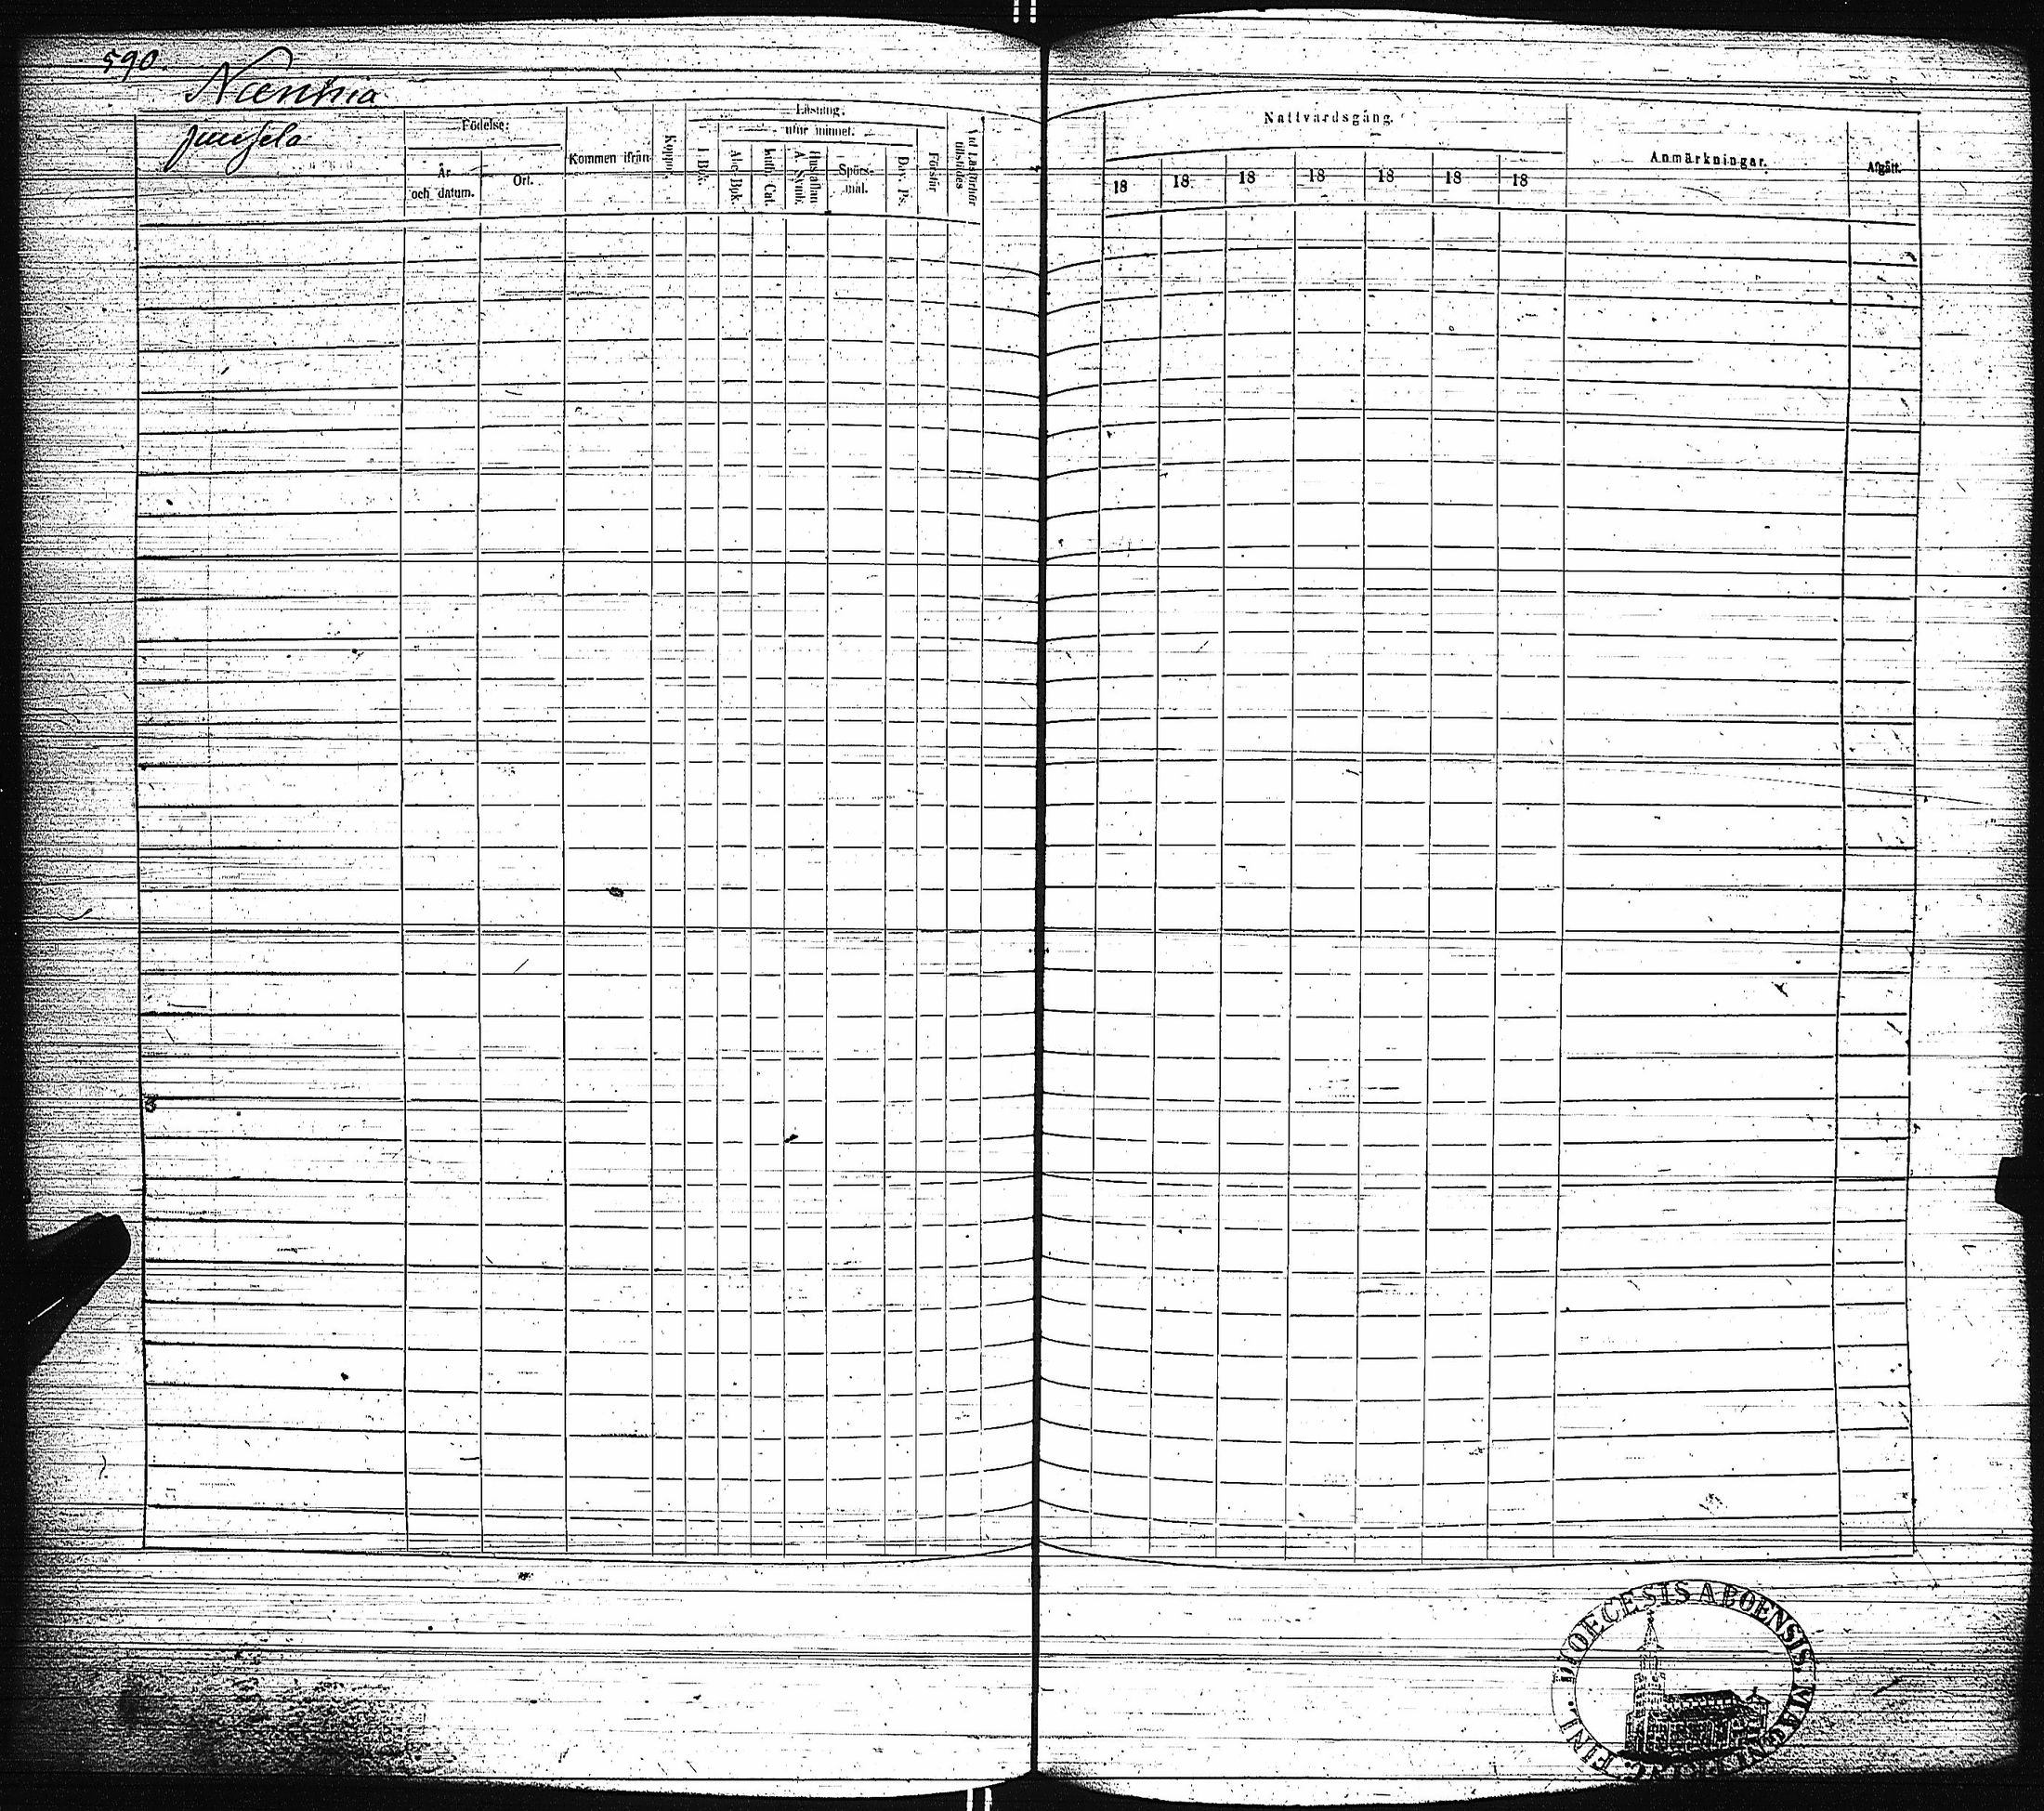 590.
Nännia
junsela
Födelse:
År
och datum.
Ort.
Kommen ifrån
Koppor.
Läsning.
utur minnet.
I Bok.
Abc-Bok.
Luth. Cat.
Hustaflan
A. Symb.
Spörs-
mål.
Dav. Ps.
Förstår
Vid Läsförhör
tillstädes
Nattvardsgång.
18
18.
18
18
18
18
18
Anmärkningar.
Afgått.
DIOECESIS ABOENSIS MAGNI FINL.